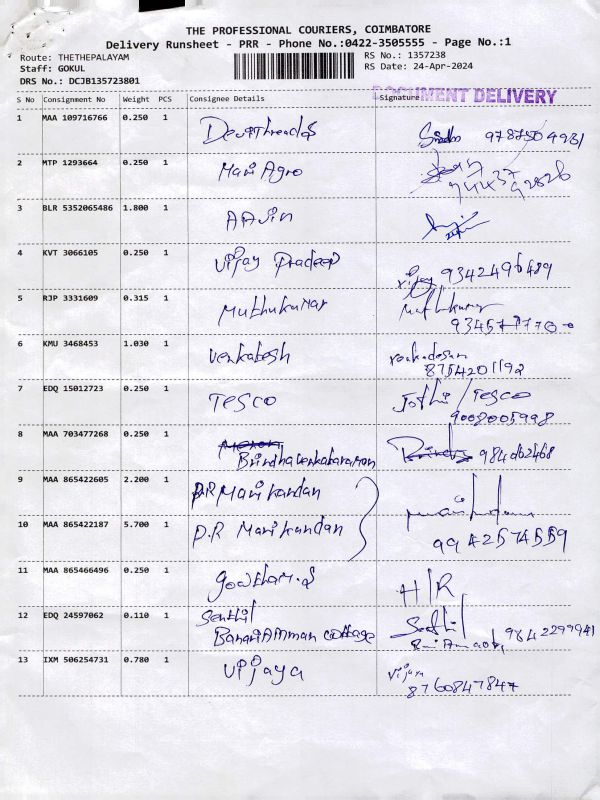 THE PROFESSIONAL COURIERS, COIMBATORE
Delivery Runsheet - PRR - Phone No.:0422-3505555 - Page No.:1
Route: THETHEPALAYAM
Staff: GOKUL
DRS No.: DCJB135723801
RS No.: 1357238
RS Date: 24-Apr-2024
DOCUMENT DELIVERY
S No Consignment No Weight PCS Consignee Details Signature
1 MAA 109716766 0.250 1
2 MTP 1293664 0.250 1 Mari Agro
3 BLR 5352065486 1.800 1 AAJin
4 KVT 3066105 0.250 1 Vijay Pradeep Vijay 9342496489
5 RJP 3331609 0.315 1 Muthukumar
6 KMU 3468453 1.030 1 Venkatesh 8754201192
7 EDQ 15012723 0.250 1 TESCO Jothi / TESCO
9003005998
8 MAA 703477268 0.250 1 Brindhavenkataraman
9 MAA 865422605 2.200 1 P.R Manikandan
10 MAA 865422187 5.700 1 P.R Manikandan 9942574559
11 MAA 865466496 0.250 1 Gowtham.S H/R
12 EDQ 24597062 0.110 1 Senthil Senthil 9842299941
BannariAmman cottage
13 IXM 506254731 0.780 1 Vijaya Vijaya
8760847847